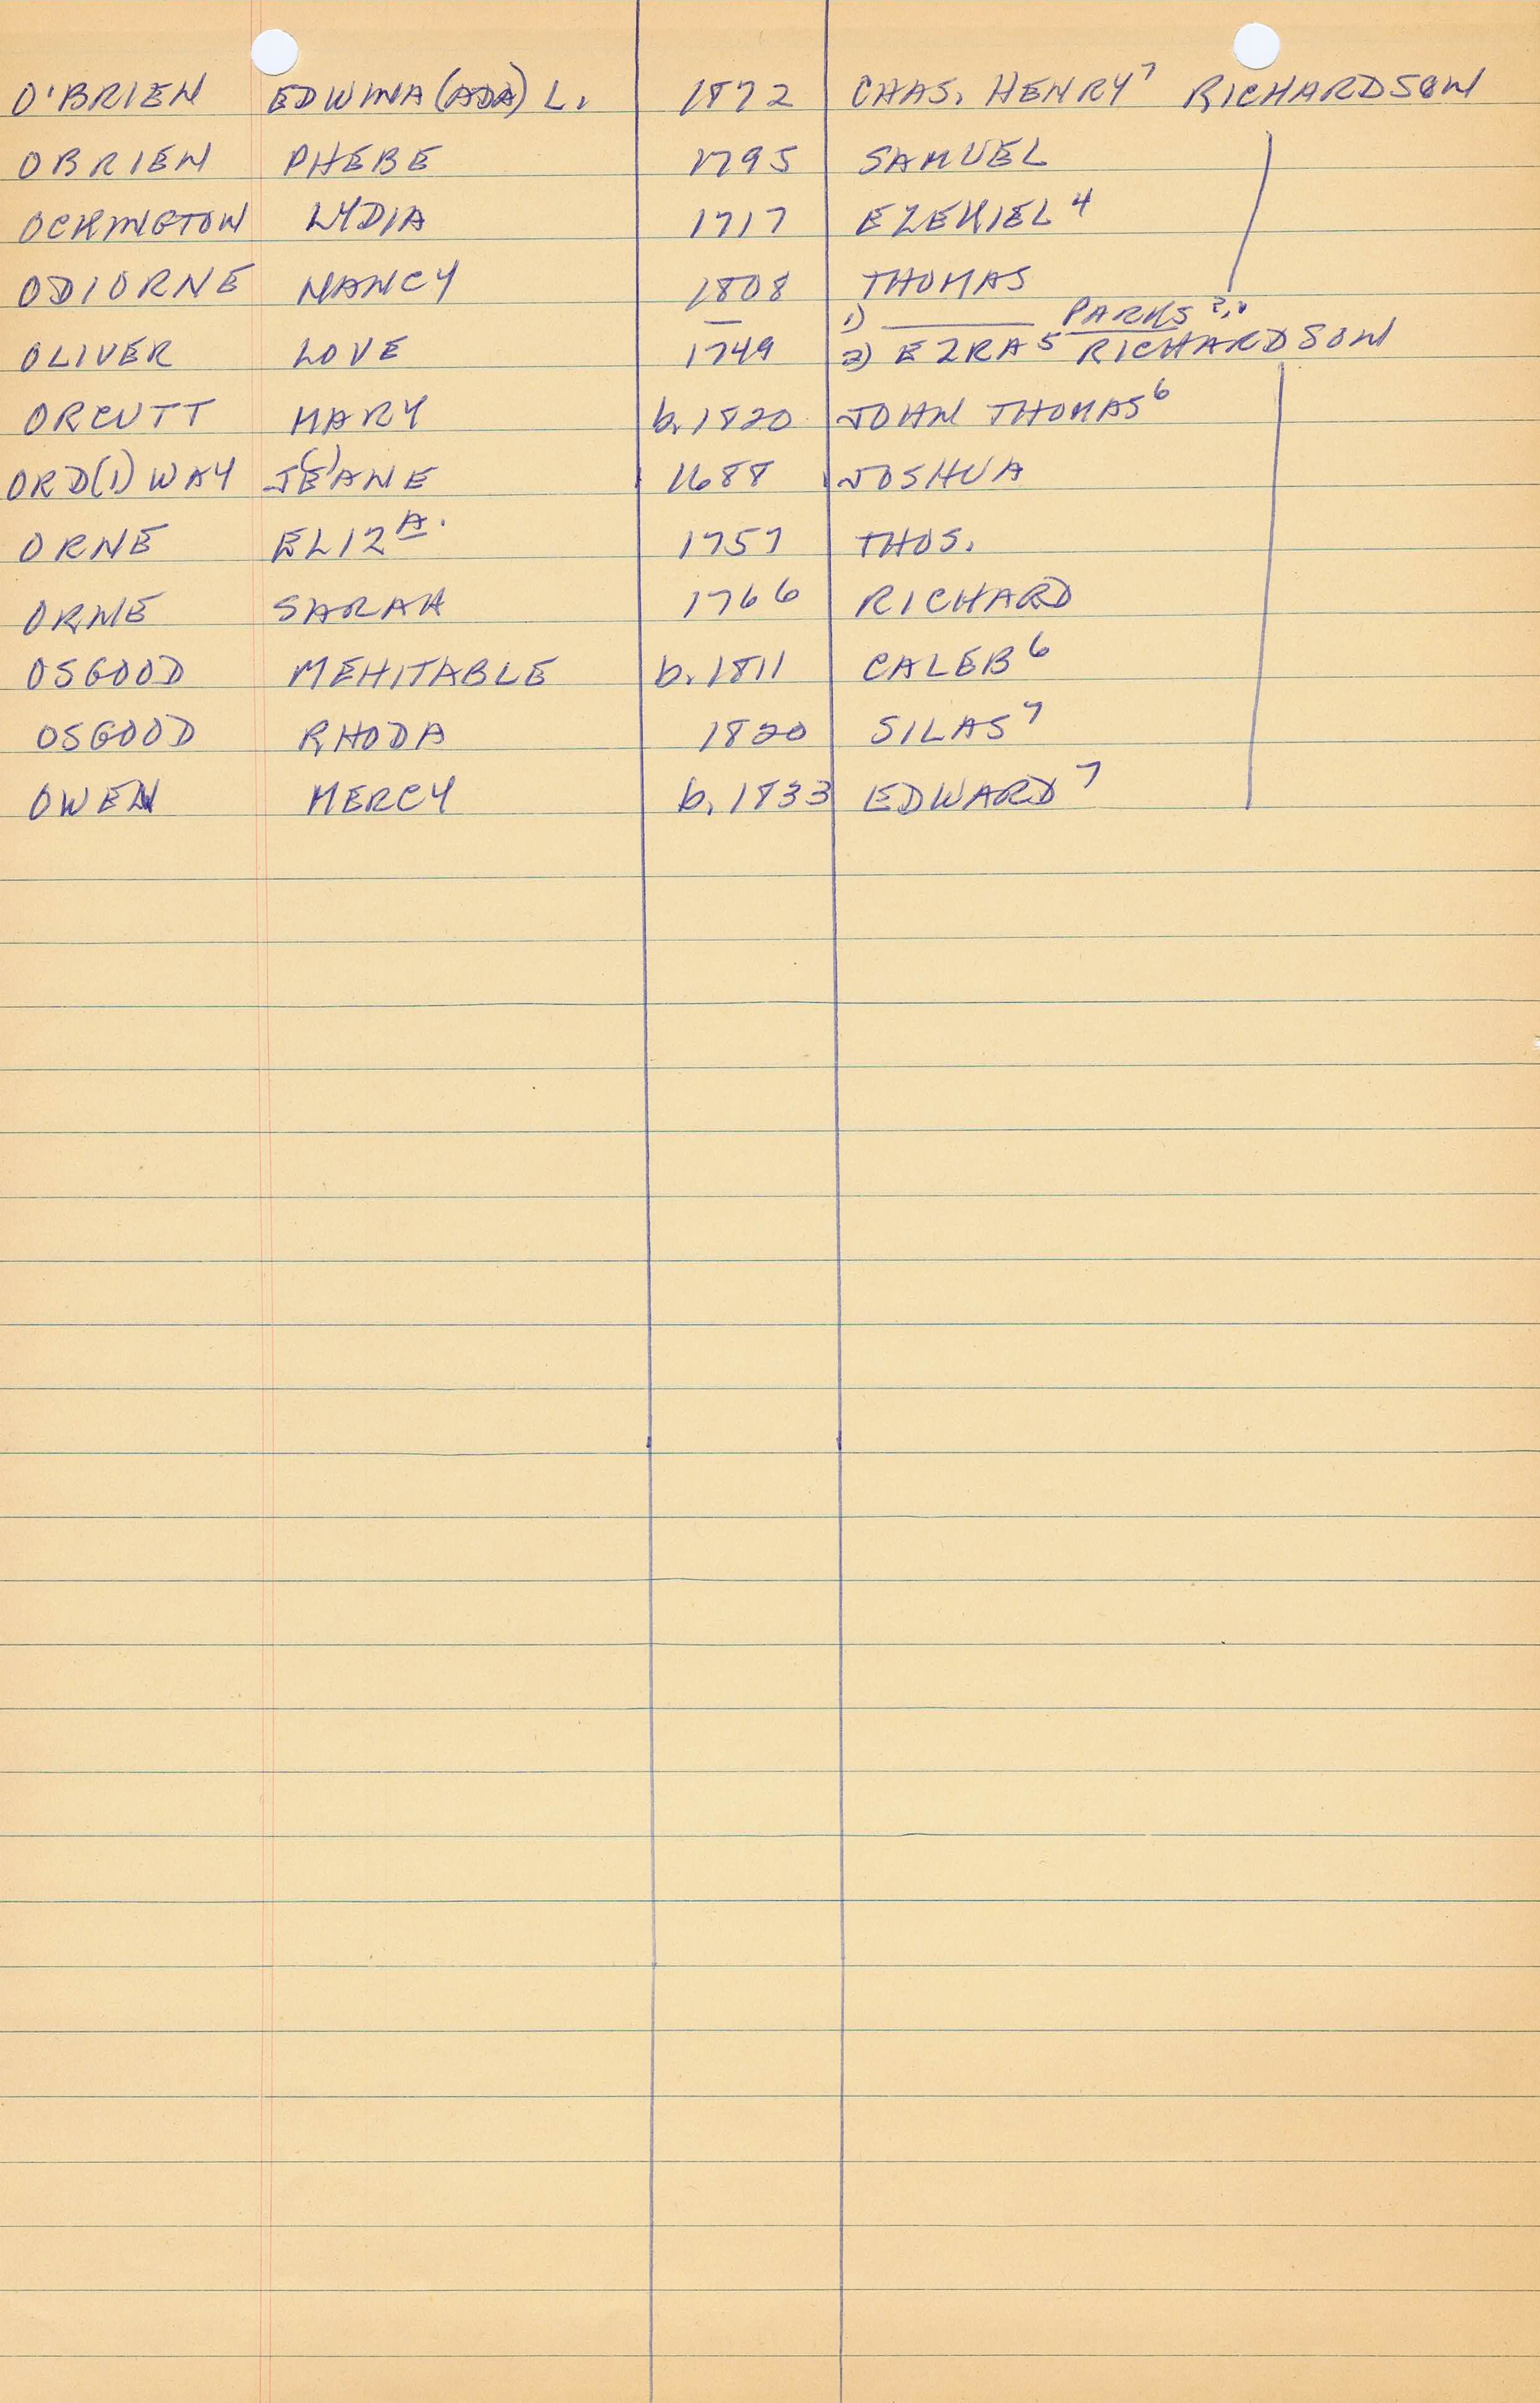 O'BRIEN EDWINA (ADA) L. 1872 CHAS. HENRY⁷ RICHARDSON
OBRIEN PHEBE 1795 SAMUEL
OCKINGTON LYDIA 1717 EZEKIEL⁴
ODIORNE NANCY 1808 THOMAS
— 1) ______ PARKS ?.
OLIVER LOVE 1749 2) EZRA⁵ RICHARDSON
ORCUTT MARY b. 1820 JOHN THOMAS⁶
ORD(I)WAY J(E)ANE 1688 JOSHUA
ORNE ELIZA. 1757 THOS.
ORNE SARAH 1766 RICHARD
OSGOOD MEHITABLE b. 1811 CALEB⁶
OSGOOD RHODA 1820 SILAS⁷
OWEN MERCY b. 1833 EDWARD⁷